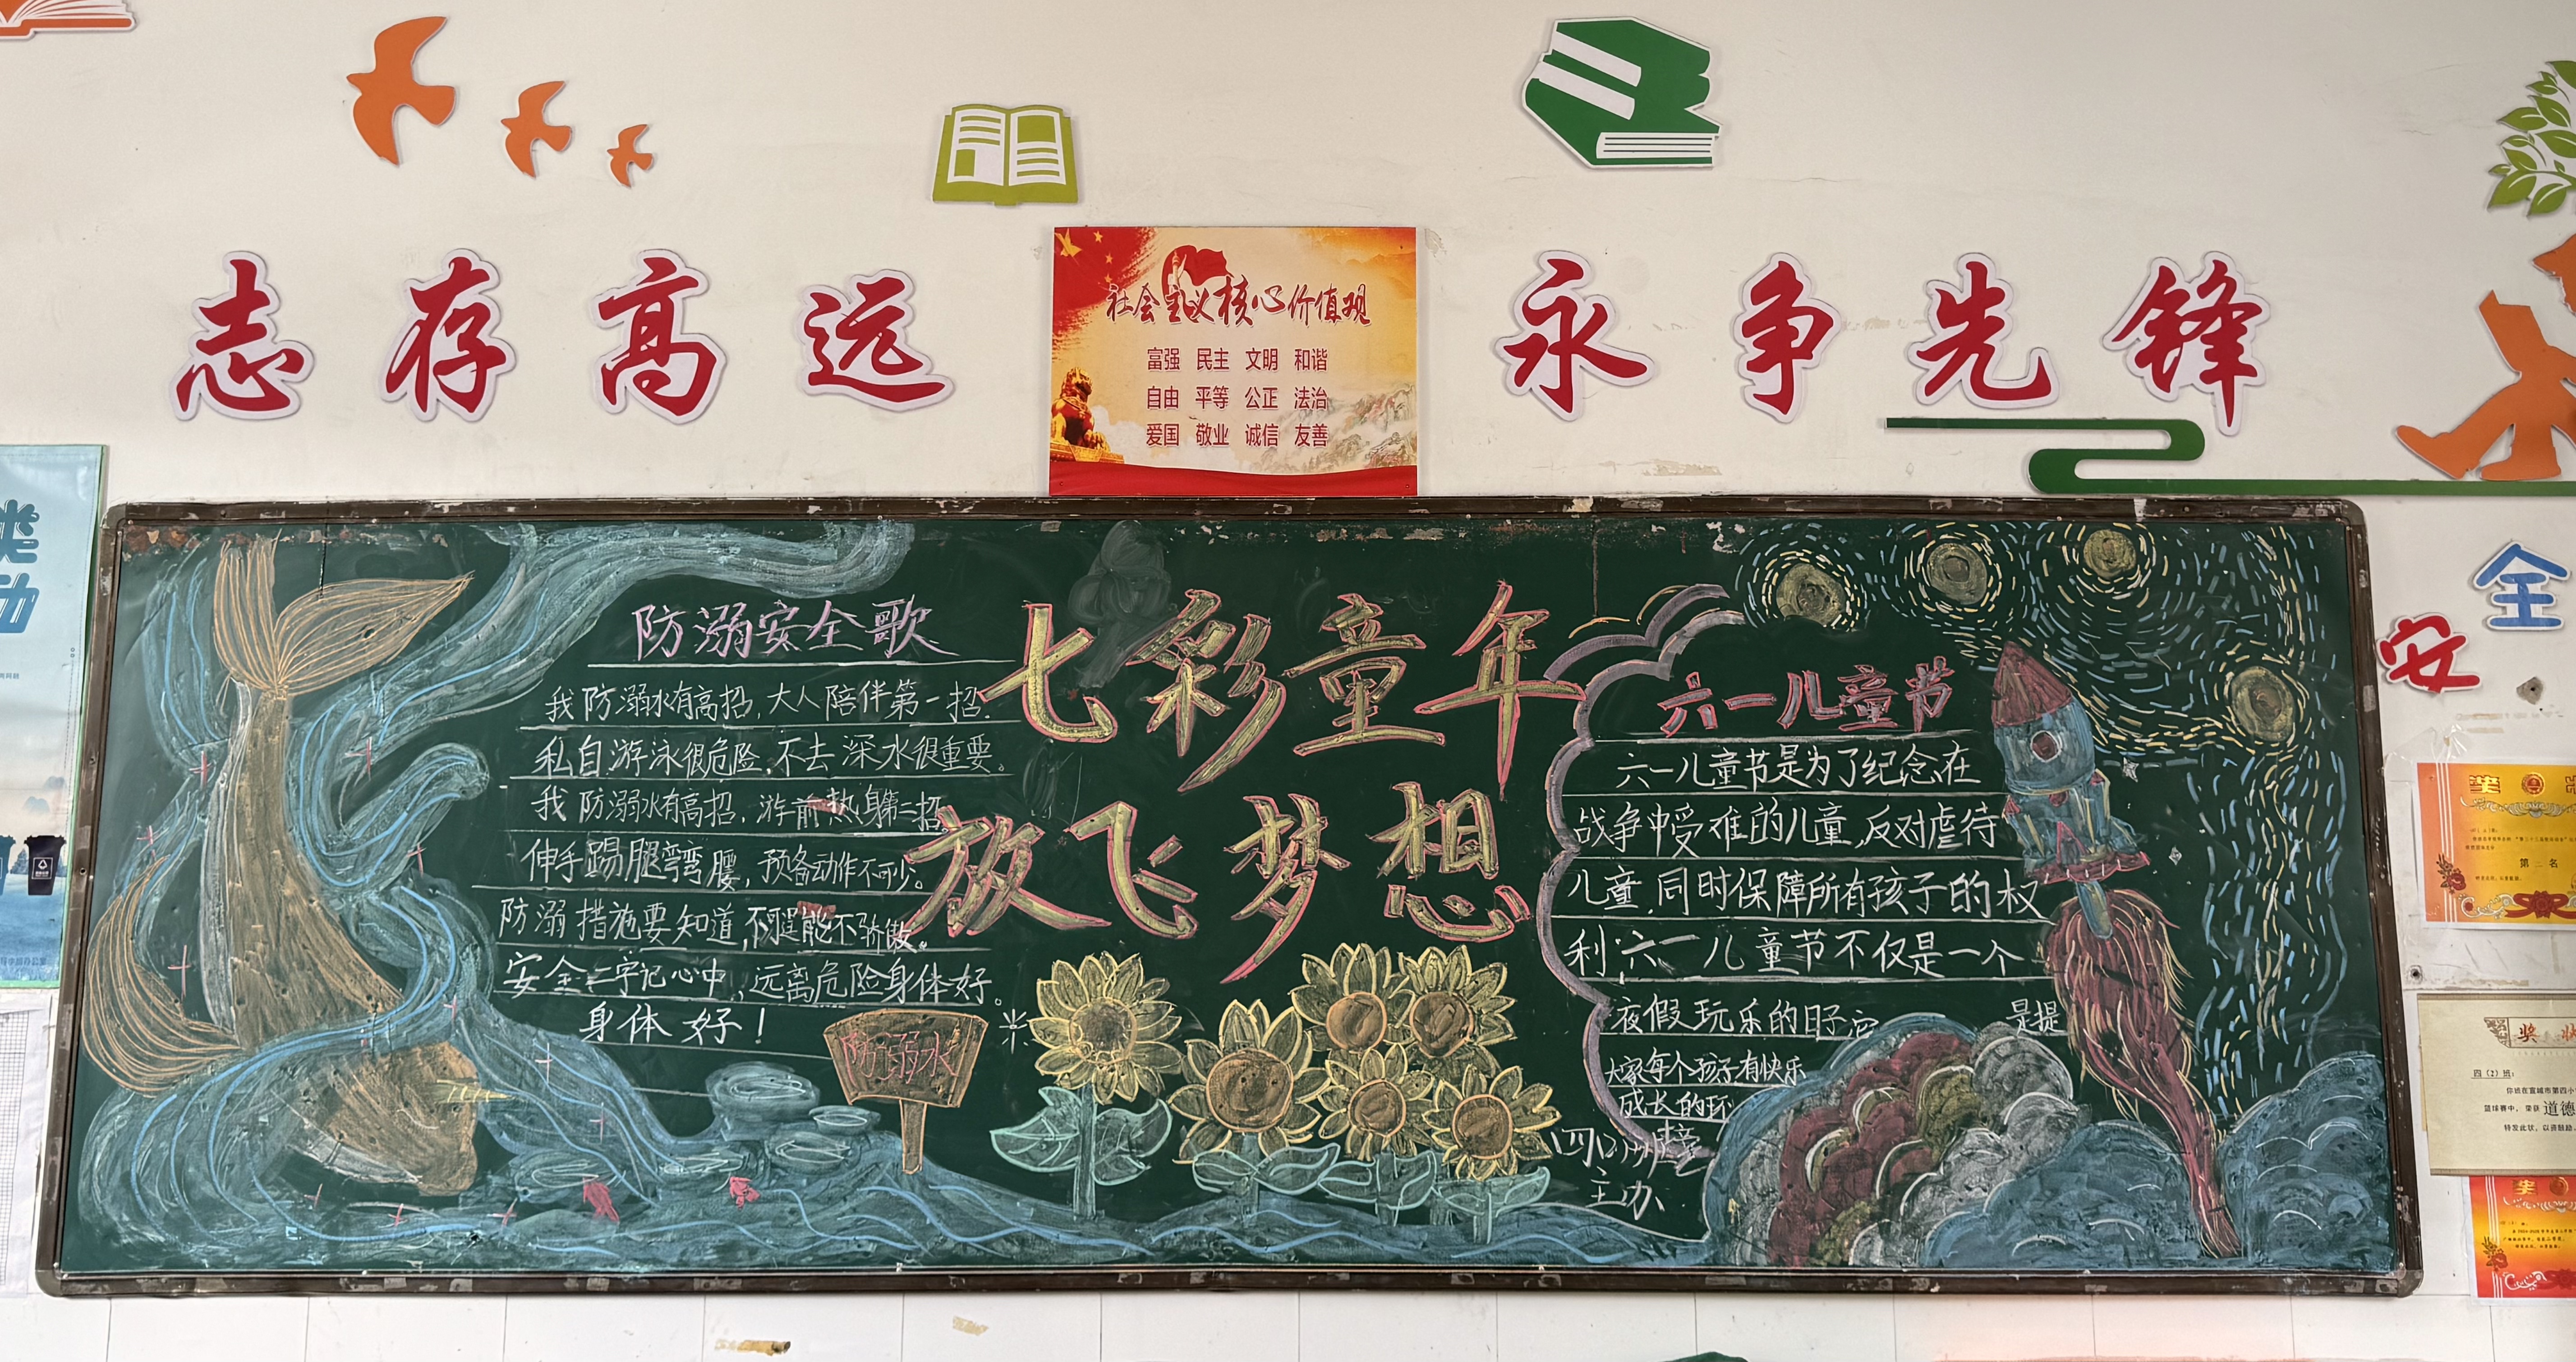 志存高远
社会主义核心价值观
富强 民主 文明 和谐
自由 平等 公正 法治
爱国 敬业 诚信 友善
永争先锋
类
动
防溺安全歌
我防溺水有高招,大人陪伴第一招.
私自游泳很危险,不去深水很重要。
我防溺水有高招,游前热身第二招
伸手踢腿弯弯腰,预备动作不可少。
防溺措施要知道,不逞能不骄傲。
安全二字记心中,远离危险身体好。
身体好!
防溺水
七彩童年
放飞梦想
六一儿童节
六一儿童节是为了纪念在
战争中受难的儿童,反对虐待
儿童,同时保障所有孩子的权
利六一儿童节不仅是一个
假玩乐的日子 是提
大家每个孩子有快乐
成长的环
主办
安全
奖
第二名
奖状
四(2)班:
你班在宣城市第四小
篮球赛中,荣获 道德
特发此状,以资鼓励
奖